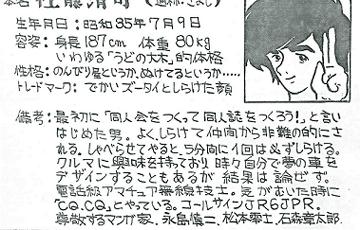 本名 佐藤清司 (通称:きよし)
生年月日:昭和35年7月9日
容姿:身長187cm 体重80kg
いわゆる"うどの大木"的体格
性格:のんびり屋というか、ぬけてるというか……
トレードマーク:でかいズータイとしらけた顔
備考:最初に「同人会をつくって同人誌をつくろう!」と言い
はじめた男。よくしらけて仲間から非難の的にさ
れる。しゃべらせてやると、5分間に1回は必ずしらける。
クルマに興味を持っており時々自分で夢の車を
デザインすることもあるが結果は論ぜず。
電話級アマチュア無線技士。気がおいた時に
「CQ.CQ」とやっている。コールサインJR6JPR.
尊敬するマンガ家、永島慎二、松本零士、石森章太郎.